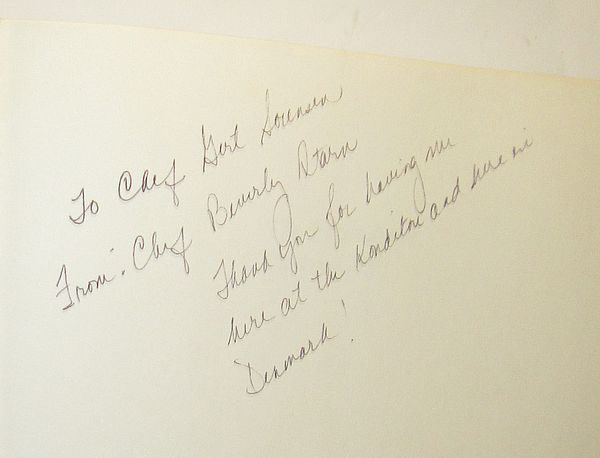 To Chef Gert Sorensen
From: Chef Beverly Starn
Thank You for having me
here at the Konditori and here in
Denmark!